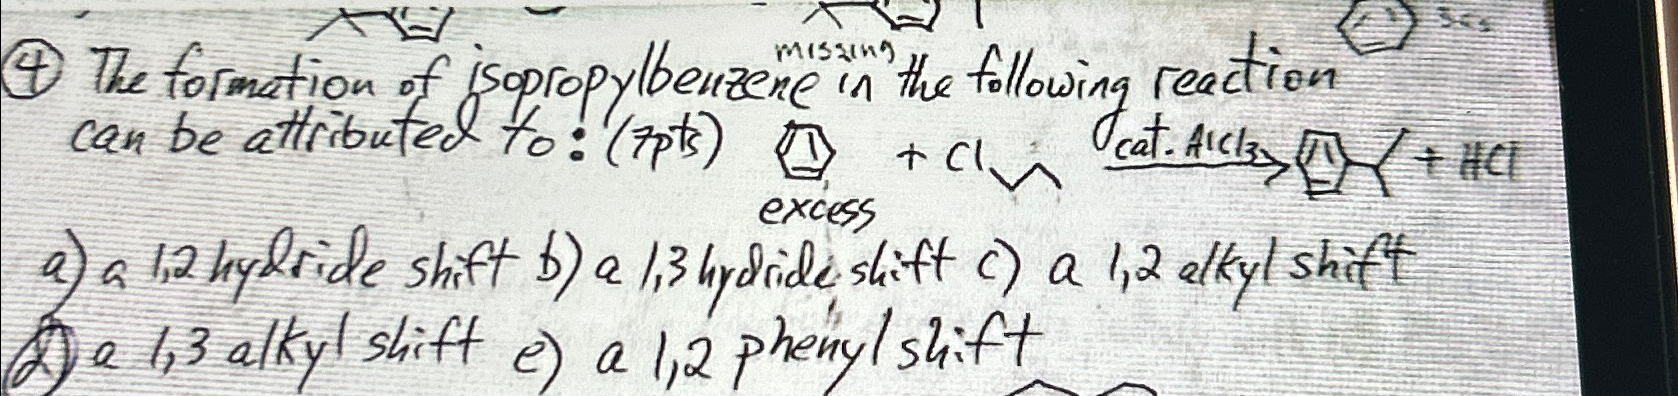 ④ The formation of isopropylbenzene missing in the following reaction
can be attributed to: (7pts) + Cl cat. AlCl3 + HCl
excess
a) a 1,2 hydride shift b) a 1,3 hydride shift c) a 1,2 alkyl shift
d) a 1,3 alkyl shift e) a 1,2 phenyl shift